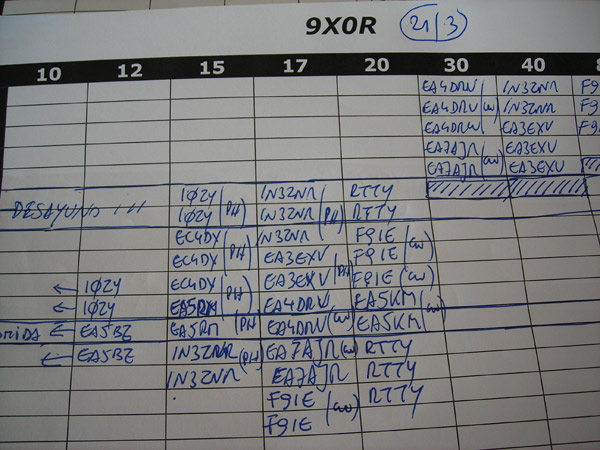 9X0R 21/3
10 12 15 17 20 30 40
EA4DRV IN3ZNR F9
EA4DRV (CW) IN3ZNR F9
EA4DRV EA3EXV F9
EA7AJR EA3EXV
EA7AJR (CW) EA3EXV
DESAYUNO IØZY IN3ZNR RTTY
IØZY (PH) IN3ZNR (PH) RTTY
EC4DX (PH) IN3ZNR F9IE (CW)
EC4DX EA3EXV F9IE
← IØZY EC4DX (PH) EA3EXV (PH) F9IE (CW)
← IØZY EA5RM EA4DRV EA5KM (CW)
← EA5BZ EA5RM (PH) EA4DRV (CW) EA5KM
← EA5BZ IN3ZNR (PH) EA7AJR (CW) RTTY
IN3ZNR EA7AJR RTTY
F9IE (CW) RTTY
F9IE